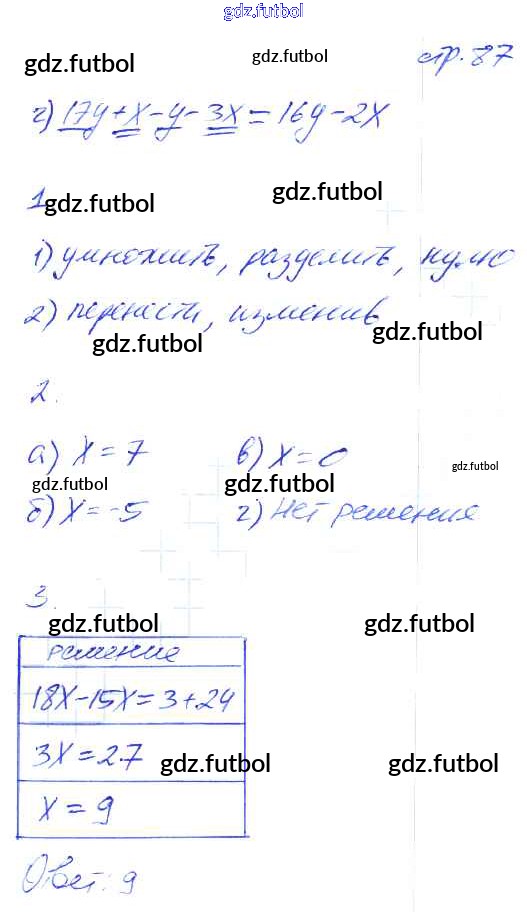 gdz.futbol
gdz.futbol gdz.futbol стр. 87
г) 17y+x-y-3x=16y-2x
1. gdz.futbol gdz.futbol
1) умножить, разделить, нулю
2) перенести, изменив
gdz.futbol gdz.futbol
2.
а) x=7 в) x=0
gdz.futbol gdz.futbol gdz.futbol
б) x=-5 г) Нет решения
3.
gdz.futbol gdz.futbol
решение
18x-15x=3+24
3x=27
gdz.futbol gdz.futbol
x=9
Ответ: 9